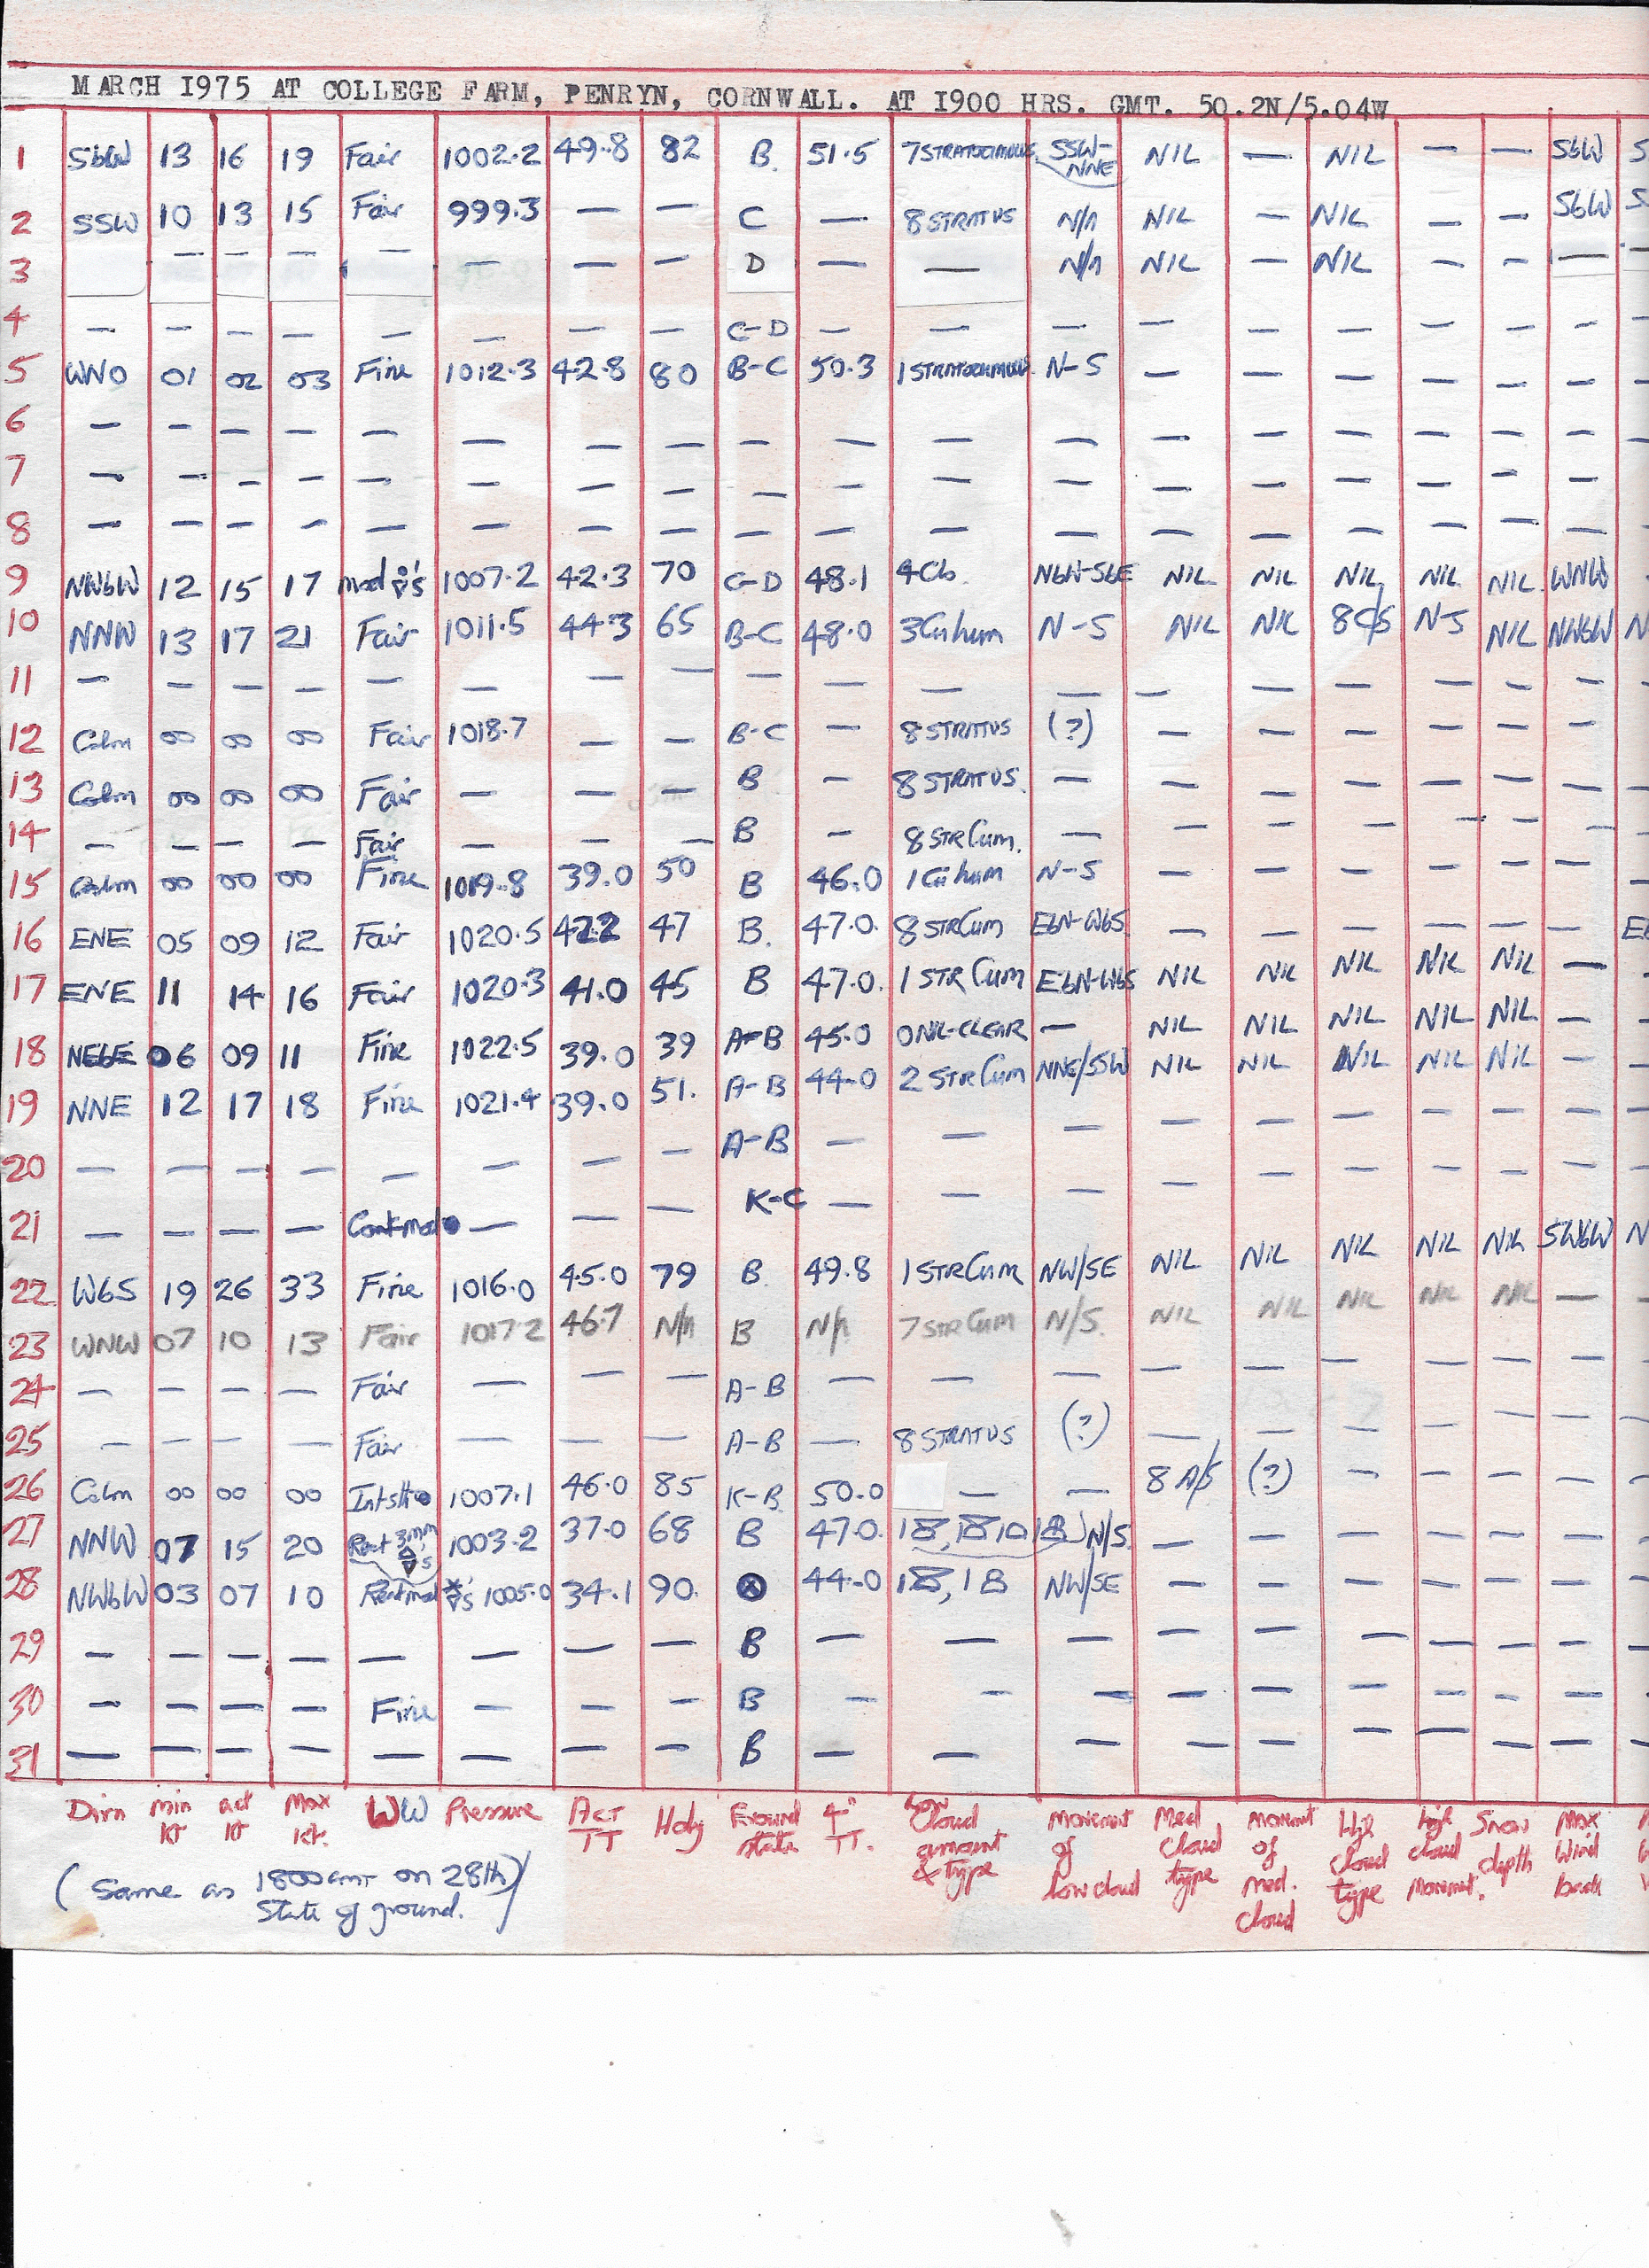 MARCH 1975 AT COLLEGE FARM, PENRYN, CORNWALL. AT 1900 HRS. GMT. 50.2N/5.04W
1 SbW 13 16 19 Fair 1002.2 49.8 82 B. 51.5 7 STRATOCUMULUS SSW-NNE NIL — NIL — — SbW S
2 SSW 10 13 15 Fair 999.3 — — C — 8 STRATUS N/A NIL — NIL — — SbW S
3 — — — — — — — D — — N/A NIL — NIL — — — —
4 — — — — — — — — C-D — — — — — — — — — —
5 WNO 01 02 03 Fine 1012.3 42.8 80 B-C 50.3 1 STRATOCUMULUS N-S — — — — — — —
6 — — — — — — — — — — — — — — — — — — —
7 — — — — — — — — — — — — — — — — — — —
8 — — — — — — — — — — — — — — — — — —
9 NWbW 12 15 17 mod 1007.2 42.3 70 C-D 48.1 4 Cb NbW-SbE NIL NIL NIL NIL NIL WNW
10 NNW 13 17 21 Fair 1011.5 44.3 65 B-C 48.0 3 Cu hum N-S NIL NIL 8 C/S N-S NIL NWbW N
11 — — — — — — — — — — — — — — — — — — —
12 Calm 00 00 00 Fair 1018.7 — — B-C — 8 STRATUS (?) — — — — — —
13 Calm 00 00 00 Fair — — — B — 8 STRATUS. — — — — — — — —
14 — — — — Fair — — — B — 8 STR Cum. — — — — — — — —
15 Calm 00 00 00 Fine 1019.8 39.0 50 B 46.0 1 Cu hum N-S — — — — — — —
16 ENE 05 09 12 Fair 1020.5 42.2 47 B. 47.0. 8 STR Cum EbN-WbS — — — — — — Eb
17 ENE 11 14 16 Fair 1020.3 41.0 45 B 47.0. 1 STR Cum EbN-WbS NIL NIL NIL NIL NIL —
18 NEbE 06 09 11 Fine 1022.5 39.0 39 A-B 45.0 0 NIL-CLEAR — NIL NIL NIL NIL NIL — —
19 NNE 12 17 18 Fine 1021.4 39.0 51. A-B 44.0 2 STR Cum NNE/SSW NIL NIL NIL NIL NIL — —
20 — — — — — — — — A-B — — — — — — — — — —
21 — — — — Cont mod ● — — — K-C — — — — — — — — — —
22 WbS 19 26 33 Fine 1016.0 45.0 79 B. 49.8 1 STR Cum NW/SE NIL NIL NIL NIL NIL SWbW N
23 WNW 07 10 13 Fair 1017.2 46.7 N/A B N/A 7 STR Cum N/S. NIL NIL NIL NIL NIL — —
24 — — — — Fair — — — A-B — — — — — — — — — —
25 — — — — Fair — — — A-B — 8 STRATUS (?) — — — — — — —
26 Calm 00 00 00 Int slt ● 1007.1 46.0 85 K-B. 50.0 — — 8 A/S (?) — — — — —
27 NNW 07 15 20 3mm 1003.2 37.0 68 B 47.0. N/S. — — — — — — —
28 NWbW 03 07 10 1005.0 34.1 90. ⊗ 44.0 NW/SE
29 — — — — — — — — B — — — — — — — — — —
30 — — — — Fine — — — B — — — — — — — — — —
31 — — — — — — — — B — — — — — — — — —
Dirn min kt act kt Max kt. WW Pressure ACT TT Hdy Ground state 4" TT. Low Cloud amount & type movement of low cloud Med cloud type movement of med. cloud High cloud type high cloud Movement. Snow depth Max Wind
(Same as 1800 GMT on 28th)
State of ground.